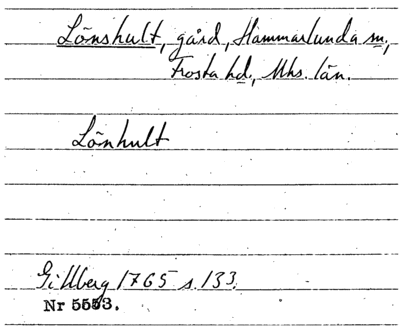 Lönshult, gård, Hammarlunda sn,
Frosta hd., Mhs. län.
Lönhult
Gillberg 1765 s. 133.
Nr 5553.